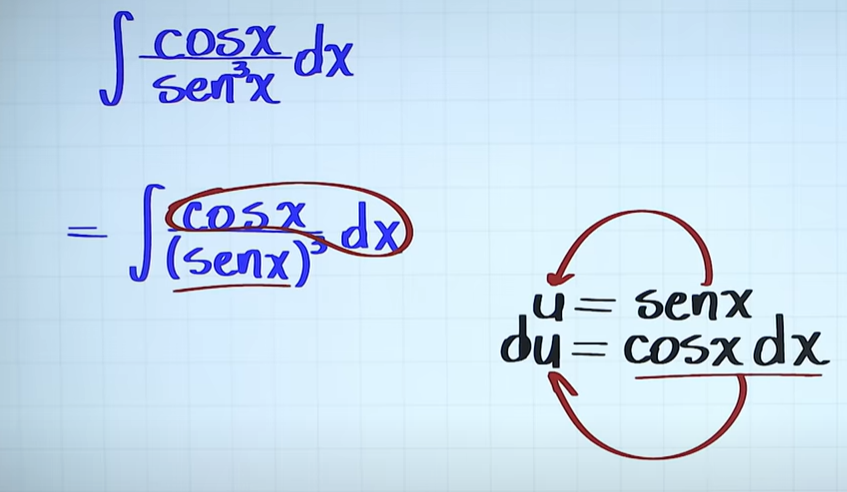 ∫ cosx/sen³x dx
= ∫ cosx/(senx)³ dx
u = senx
du = cosx dx